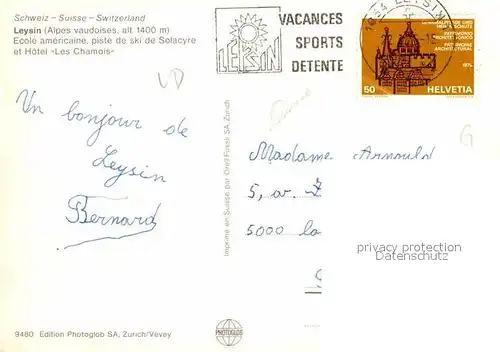 Schweiz - Suisse - Switzerland
Leysin (Alpes vaudoises, alt. 1400 m)
Ecole américaine, piste de ski de Solacyre
et Hôtel «Les Chamois»
LEYSIN
VACANCES
SPORTS
DETENTE
1854 LEYSIN
PATRIMONIO
ARCHITETTONICO
PATRIMOINE
ARCHITECTURAL
1975
50 HELVETIA
Un bonjour de
Leysin
Bernard
Imprimé en Suisse par Orell Füssli SA, Zurich
Madame Arnould
5, av.
5000 la
privacy protection
Datenschutz
PHOTOGLOB
9480 Edition Photoglob SA, Zurich/Vevey